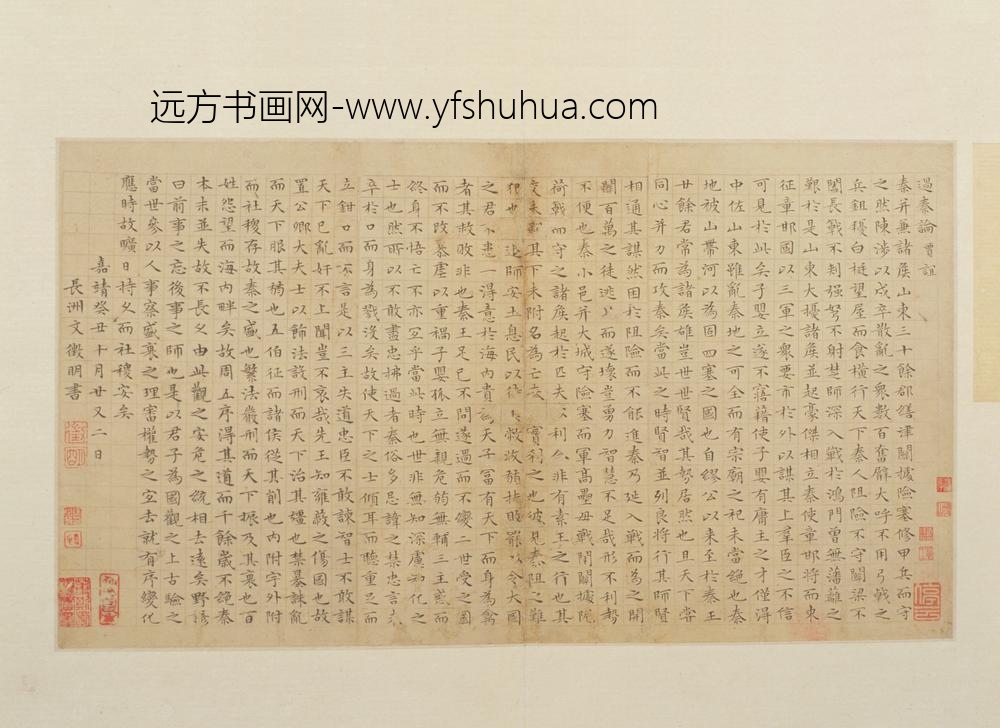 远方书画网-www.yfshuhua.com
過秦論 賈誼
秦并兼諸矦山東三十餘郡繕津關據險塞修甲兵而守
之然陳涉以戍卒散亂之衆數百奮臂大呼不用弓戟之
兵鉏櫌白梃望屋而食橫行天下秦人阻險不守關梁不
闔長戟不刺强弩不射楚師深入戰於鴻門曾無藩離之
艱於是山東大擾諸矦並起豪傑相立秦使章邯將而東
征章邯因以三軍之衆要市於外以謀其上羣臣之不信
可見於此矣子嬰立遂不寤藉使子嬰有庸主之才僅得
中佐山東雖亂秦地之可全而有宗廟之祀未當絕也秦
地被山帶河以為固四塞之國也自繆公以來至於秦王
廿餘君常為諸矦雄豈世世賢哉其勢居然也且天下嘗
同心并力而攻秦矣當此之時賢智並列良將行其師賢
相通其謀然困於阻險而不能進秦乃延入戰而為之開
關百萬之徒逃而遂壞豈勇力智慧不足哉形不利勢
不便也秦小邑并大城守險塞而軍高壘毋戰閉關據阨
荷戟而守之諸矦起於匹夫以利非有素王之行也其
交未親其下未附名為亡秦實利之也彼見秦阻之難
犯也退師安土息民以待救收弱扶罷以令大國
之君不患一得意於海内貴為天子富有天下而身為禽
者其救敗非也秦王足己不問遂過而不變二世受之因
而不改暴虐以重禍子嬰孤立無親危弱無輔三主惑而
終身不悟亡不亦宜乎當此時也世非無知深慮知化之
士也然所以不敢盡忠拂過者秦俗多忌諱之禁忠言未
卒於口而身為戮沒矣故使天下之士傾耳而聽重足而
立鉗口而不言是以三主失道忠臣不敢諫智士不敢謀
天下已亂奸不上聞豈不哀哉先王知雍蔽之傷國也故
置公卿大夫士以飾法設刑而天下治其彊也禁暴誅亂
而天下服其弱也五伯征而諸侯從其削也内附字外附
而社稷存故秦之盛也繁法嚴刑而天下振及其衰也百
姓怨望而海内畔矣故周五序得其道而千餘歲不絕秦
本末並失故不長久由此觀之安危之統相去遠矣野諺
曰前事之忘後事之師也是以君子為國觀之上古驗之
當世參以人事察盛衰之理審權勢之宜去就有序變化
應時故曠日持久而社稷安矣
嘉靖癸丑十月廿又二日
長洲文徵明書